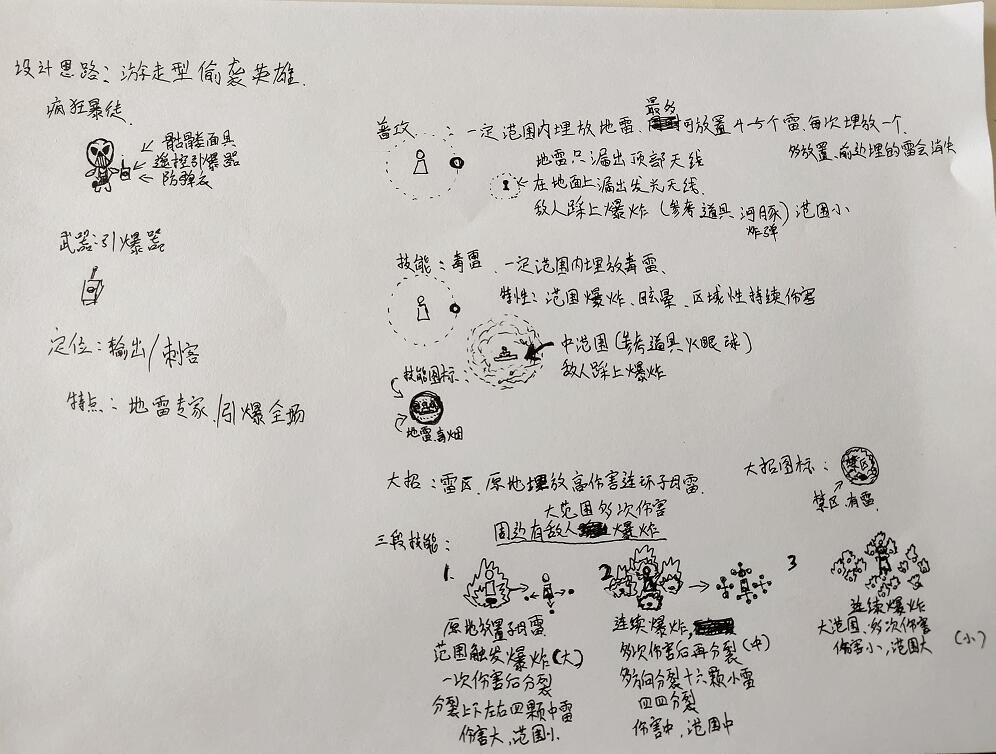 设计思路：游走型偷袭英雄.
疯狂暴徒.
骷髅面具
遥控引爆器
防弹衣
武器：引爆器
定位：输出/刺客
特点：地雷专家./引爆全场
普攻....：一定范围内埋放地雷、最多可放置4-5个雷.每次埋放一个.
多放置、前边埋的雷会消失
地雷只漏出顶部天线
在地面上漏出发光天线.
敌人踩上爆炸（参考道具 河豚炸弹）范围小
技能：毒雷.一定范围内埋放毒雷、
特性：范围爆炸、眩晕、区域性持续伤害
中范围（参考道具火眼球）
敌人踩上爆炸
技能图标：
地雷.毒烟
大招：雷区.原地埋放高伤害连环子母雷.
大范围多次伤害
周边有敌人爆炸
大招图标：
禁区
禁区有雷.
三段技能：
1.
原地放置子母雷
范围触发爆炸（大）
一次伤害后分裂
分裂上下左右四颗中雷
伤害大，范围小.
2
连续爆炸，
多次伤害后再分裂（中）
多方向分裂十六颗小雷
四四分裂
伤害中，范围中
3
连续爆炸
大范围、多次伤害
伤害小，范围大（小）